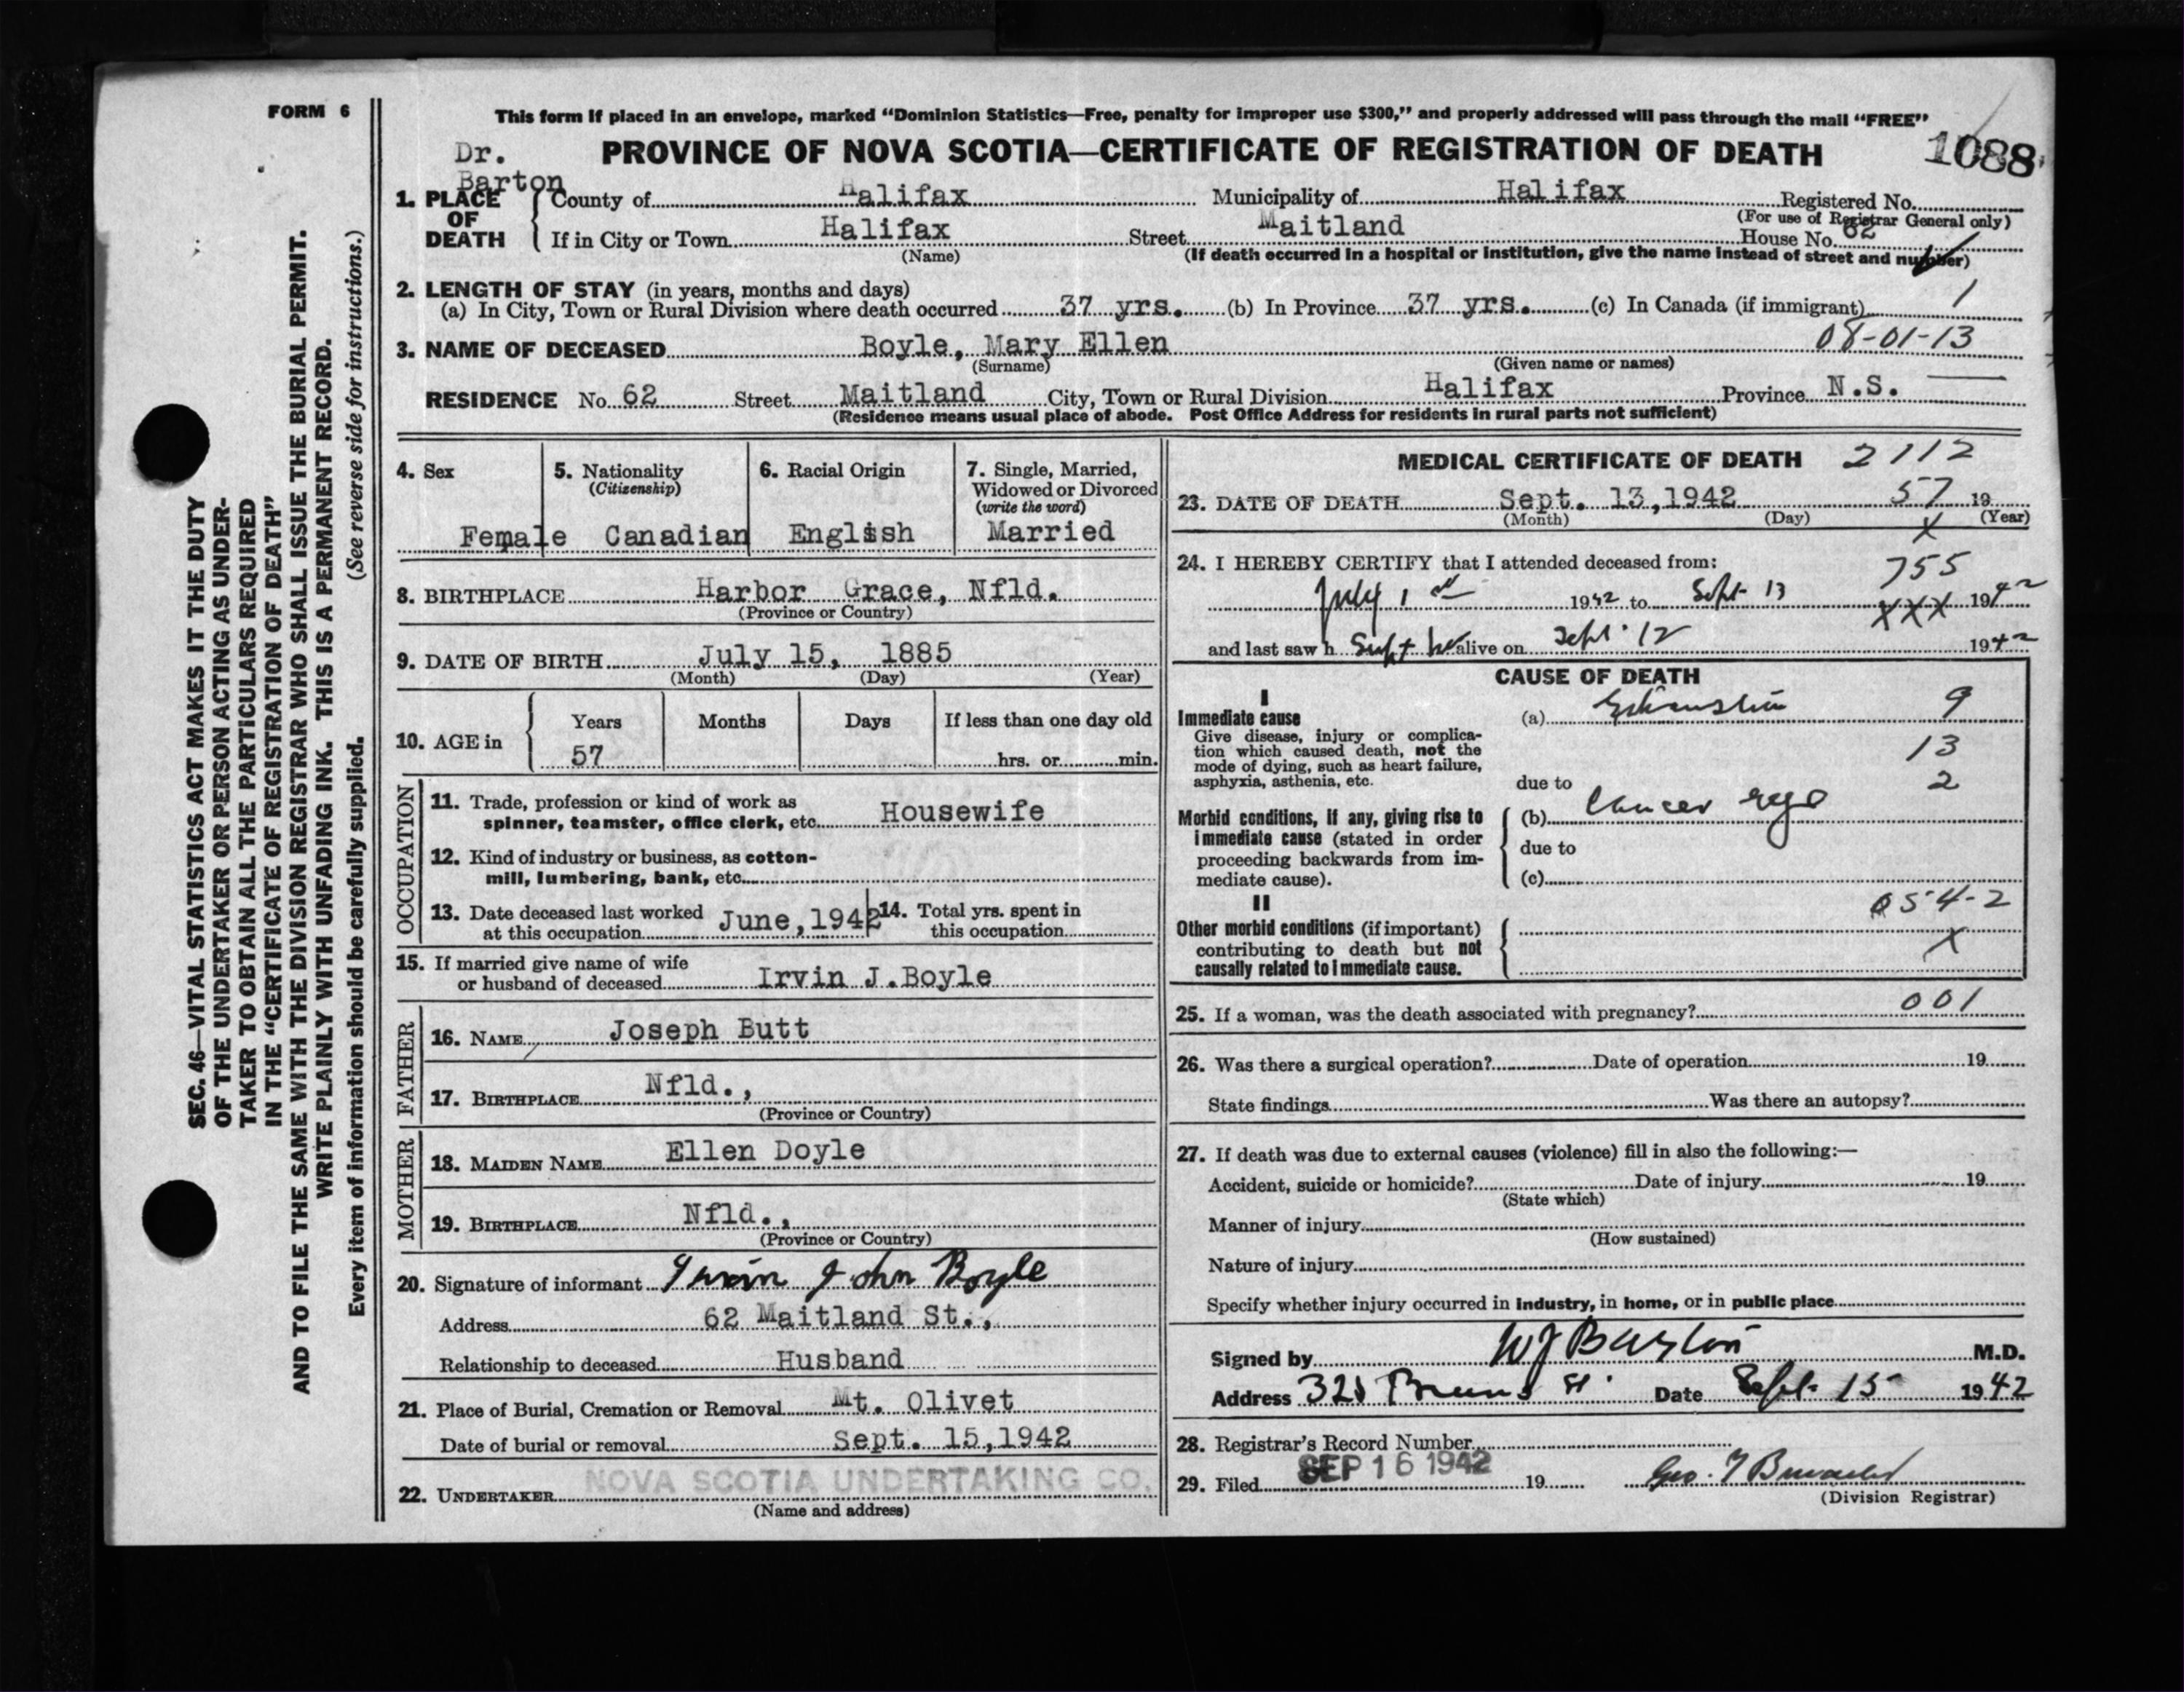 FORM 6
This form if placed in an envelope, marked “Dominion Statistics—Free, penalty for improper use $300,” and properly addressed will pass through the mail “FREE”
Dr. Barton
PROVINCE OF NOVA SCOTIA—CERTIFICATE OF REGISTRATION OF DEATH
1088
1. PLACE OF DEATH
County of Halifax Municipality of Halifax Registered No.
(For use of Registrar General only)
If in City or Town Halifax Street Maitland House No. 62
(Name) (If death occurred in a hospital or institution, give the name instead of street and number)
2. LENGTH OF STAY (in years, months and days)
(a) In City, Town or Rural Division where death occurred 37 yrs. (b) In Province 37 yrs. (c) In Canada (if immigrant) 1
08-01-13
3. NAME OF DECEASED Boyle, Mary Ellen
(Surname) (Given name or names)
RESIDENCE No. 62 Street Maitland City, Town or Rural Division Halifax Province N.S.
(Residence means usual place of abode. Post Office Address for residents in rural parts not sufficient)
4. Sex
Female
5. Nationality
(Citizenship)
Canadian
6. Racial Origin
English
7. Single, Married,
Widowed or Divorced
(write the word)
Married
8. BIRTHPLACE Harbor Grace, Nfld.
(Province or Country)
9. DATE OF BIRTH July 15, 1885
(Month) (Day) (Year)
10. AGE in
Years Months Days If less than one day old
57 hrs. or min.
OCCUPATION
11. Trade, profession or kind of work as
spinner, teamster, office clerk, etc. Housewife
12. Kind of industry or business, as cotton-
mill, lumbering, bank, etc.
13. Date deceased last worked
at this occupation June, 1942
14. Total yrs. spent in
this occupation
15. If married give name of wife
or husband of deceased Irvin J. Boyle
FATHER
16. NAME Joseph Butt
17. BIRTHPLACE Nfld.,
(Province or Country)
MOTHER
18. MAIDEN NAME Ellen Doyle
19. BIRTHPLACE Nfld.,
(Province or Country)
20. Signature of informant Irvin John Boyle
Address 62 Maitland St.,
Relationship to deceased Husband
21. Place of Burial, Cremation or Removal Mt. Olivet
Date of burial or removal Sept. 15, 1942
22. UNDERTAKER NOVA SCOTIA UNDERTAKING CO.
(Name and address)
MEDICAL CERTIFICATE OF DEATH 2112
23. DATE OF DEATH Sept. 13, 1942 57 19
(Month) (Day) (Year)
X
24. I HEREBY CERTIFY that I attended deceased from:
755
July 1st 1942 to Sept 13 XXX 1942
and last saw h alive on Sept. 12 1942
CAUSE OF DEATH
I
Immediate cause
Give disease, injury or complica-
tion which caused death, not the
mode of dying, such as heart failure,
asphyxia, asthenia, etc.
(a) Exhaustion 9
13
2
due to
Morbid conditions, if any, giving rise to
immediate cause (stated in order
proceeding backwards from im-
mediate cause).
(b) Cancer
due to
(c)
054-2
II
Other morbid conditions (if important)
contributing to death but not
causally related to immediate cause.
X
001
25. If a woman, was the death associated with pregnancy?
26. Was there a surgical operation? Date of operation 19
State findings Was there an autopsy?
27. If death was due to external causes (violence) fill in also the following:—
Accident, suicide or homicide? Date of injury 19
(State which)
Manner of injury
(How sustained)
Nature of injury
Specify whether injury occurred in industry, in home, or in public place
Signed by WJ Barton M.D.
Address St. Date Sept. 15 1942
28. Registrar's Record Number
29. Filed SEP 16 1942 19 Geo.
(Division Registrar)
SEC. 46—VITAL STATISTICS ACT MAKES IT THE DUTY
OF THE UNDERTAKER OR PERSON ACTING AS UNDER-
TAKER TO OBTAIN ALL THE PARTICULARS REQUIRED
IN THE “CERTIFICATE OF REGISTRATION OF DEATH”
AND TO FILE THE SAME WITH THE DIVISION REGISTRAR WHO SHALL ISSUE THE BURIAL PERMIT.
WRITE PLAINLY WITH UNFADING INK. THIS IS A PERMANENT RECORD.
Every item of information should be carefully supplied. (See reverse side for instructions.)